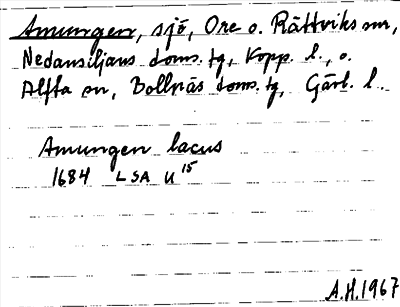 Amungen, sjö, Ore o. Rättviks snr,
Nedansiljans doms. tg, Kopp. l., o.
Alfta sn, Bollnäs doms. tg, Gävl. l.
Amungen lacus
1684 LSA U 15
A.H. 1967